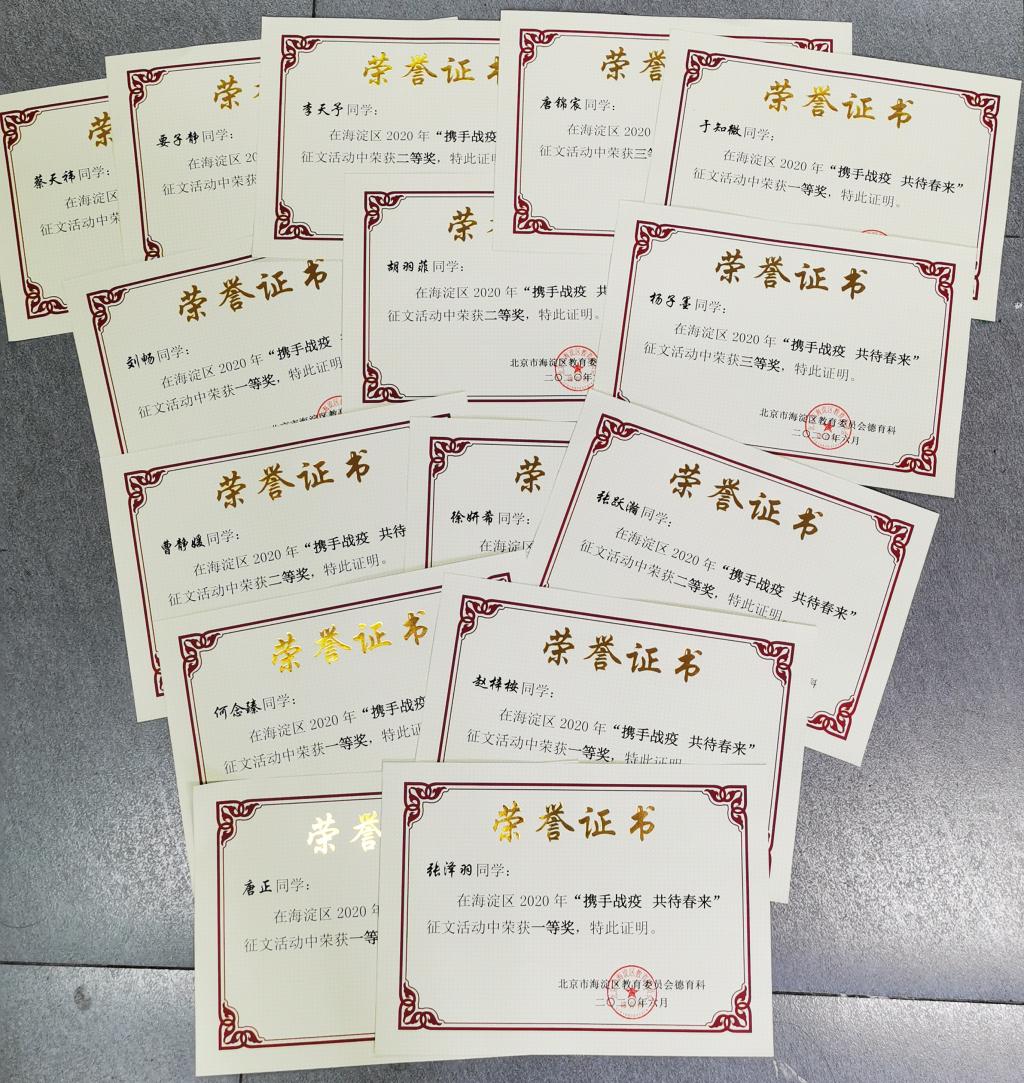 荣
蔡天祎同学：
在海淀
征文活动中
荣
要子静同学：
在海淀区 20
征文活动中荣获
荣誉证
李天予同学：
在海淀区 2020 年“携手战
征文活动中荣获二等奖，特此证明
荣誉
唐锦宸同学：
在海淀区 2020
征文活动中荣获三等
荣誉证书
于知微同学：
在海淀区 2020 年“携手战疫 共待春来”
征文活动中荣获一等奖，特此证明。
荣誉证书
刘畅同学：
在海淀区 2020 年“携手战疫
征文活动中荣获一等奖，特此证明
北京市海淀
荣
胡羽菲同学：
在海淀区 2020 年“携手战疫 共
征文活动中荣获二等奖，特此证明。
北京市海淀区教育委
二〇二〇年
荣誉证书
杨子墨同学：
在海淀区 2020 年“携手战疫 共待春来”
征文活动中荣获三等奖，特此证明。
北京市海淀区教育委员会德育科
二〇二〇年六月
荣誉证书
曹静媛同学：
在海淀区 2020 年“携手战疫 共待
征文活动中荣获二等奖，特此证明。
荣
徐妍希同学：
在海淀区
荣誉证书
张跃瀚同学：
在海淀区 2020 年“携手战疫 共待春来”
征文活动中荣获二等奖，特此证明。
科
荣誉证书
何念臻同学：
在海淀区 2020 年“携手战疫
征文活动中荣获一等奖，特此证
荣誉证书
赵梓桉同学：
在海淀区 2020 年“携手战疫 共待春来”
征文活动中荣获一等奖，特此证明
荣誉
唐正同学：
在海淀区 2020 年
征文活动中荣获一等
荣誉证书
张泽羽同学：
在海淀区 2020 年“携手战疫 共待春来”
征文活动中荣获一等奖，特此证明。
北京市海淀区教育委员会德育科
二〇二〇年六月